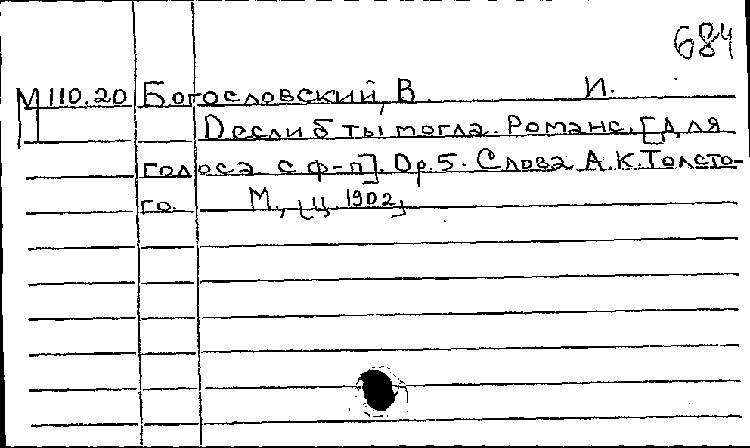 684
М 110.20 Богословский, В. И.
О если б ты могла. Романс. [Для
голоса с ф-п]. Ор. 5. Слова А.К. Толсто-
го. М., [ц. 1902]